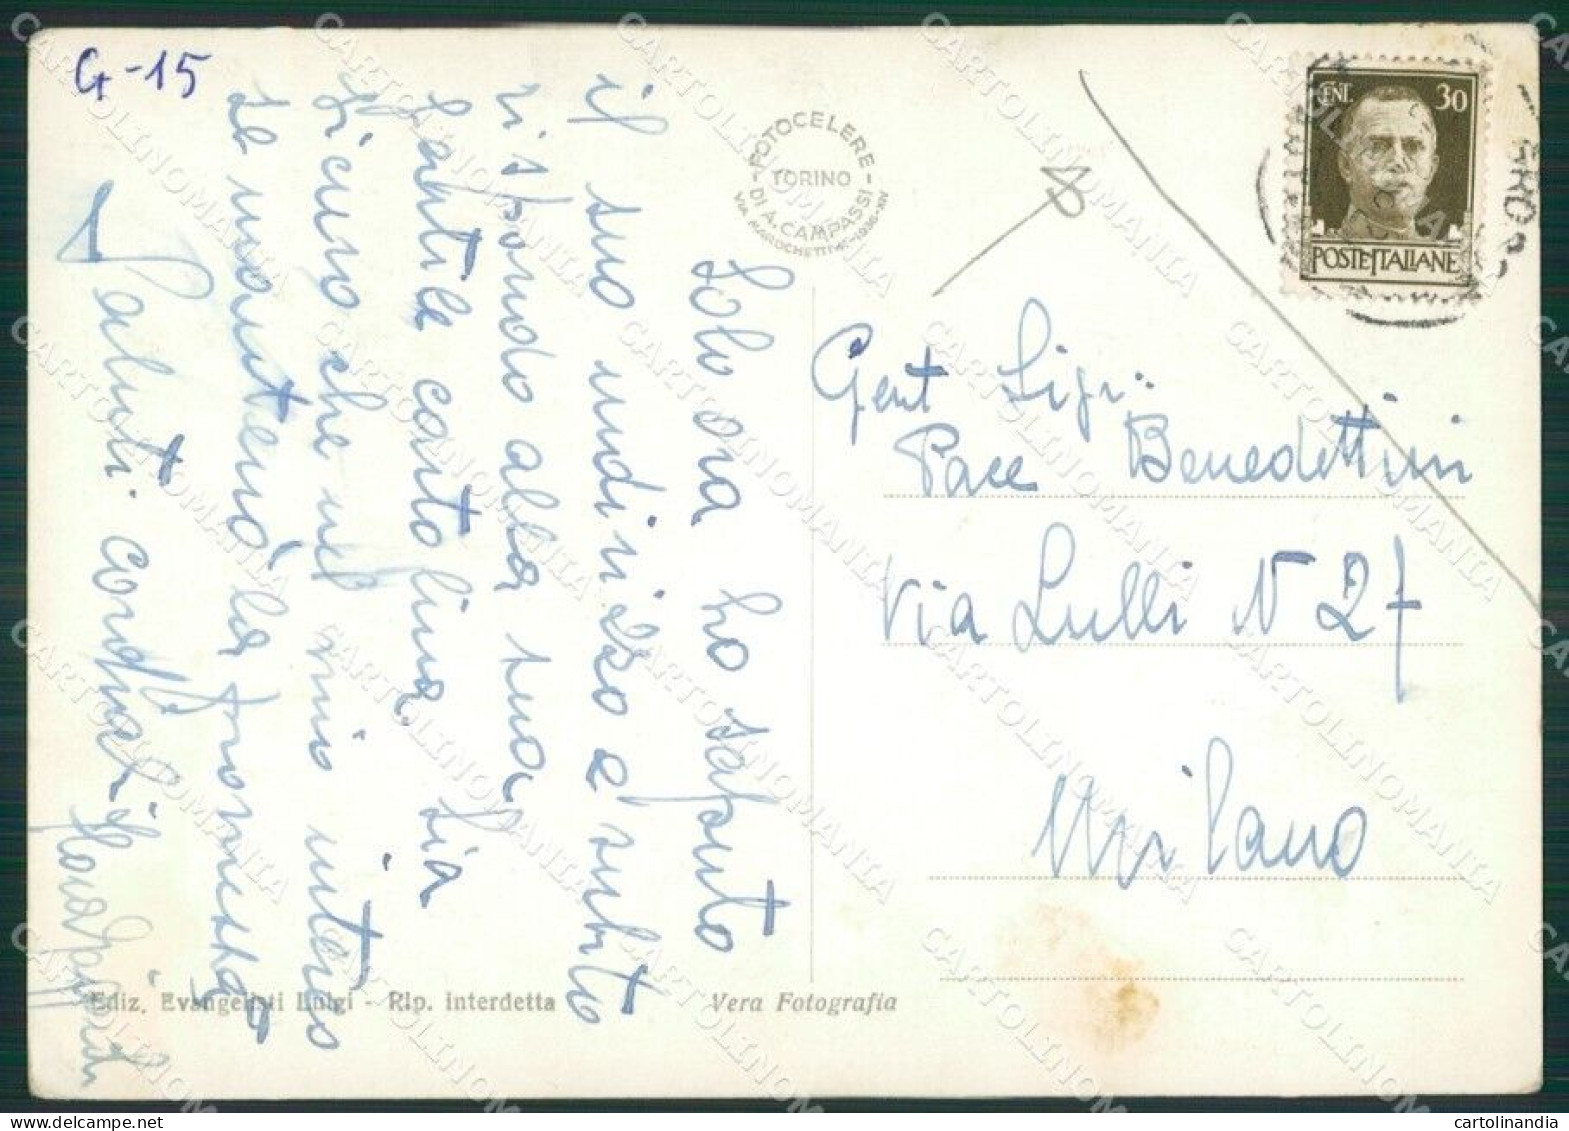 G-15
Solo ora ho saputo
il suo indirizzo e subito
rispondo alla sua
gentile cartolina. Sia
sicuro che nel mio interes
se manterrò la promessa
Saluti cordiali
FOTOCELERE
TORINO
DI A. CAMPASSI
VIA MAROCHETTI 41-1936-XIV
CENT. 30
POSTE ITALIANE
Gent Sig.
Pace Benedettini
Via Lulli N 27
Milano
Ediz. Evangelisti Luigi - Rip. interdetta
Vera Fotografia
CARTOLINOMANIA
cartolinandia